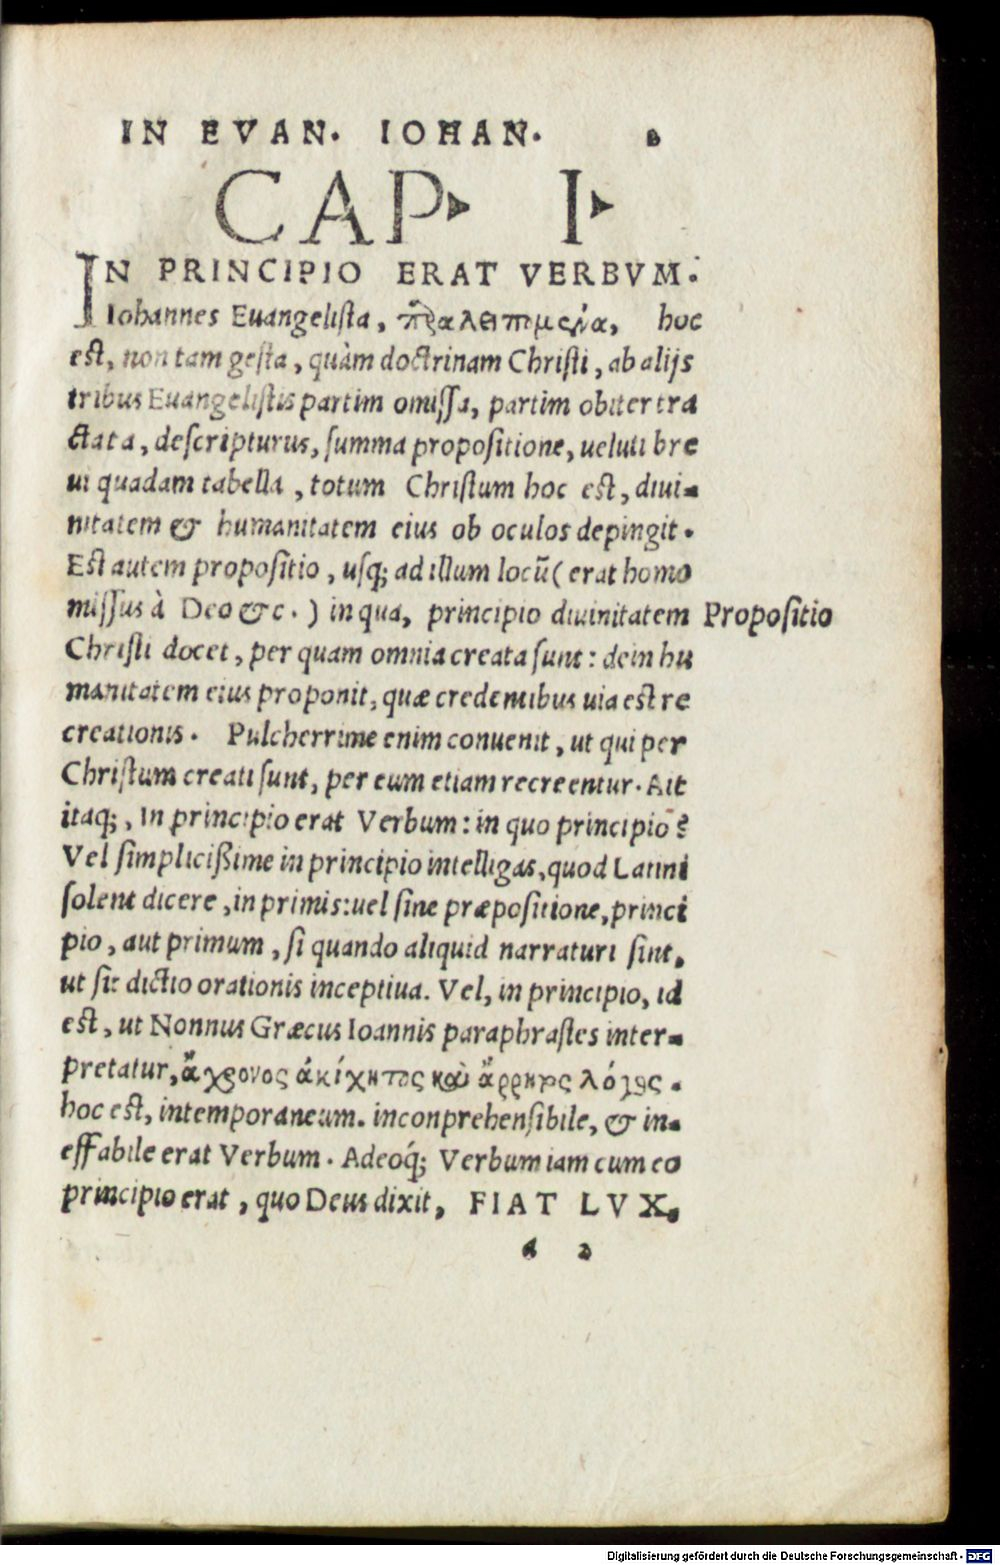 IN EVAN. IOHAN.
CAP. I.
IN PRINCIPIO ERAT VERBVM.
Iohannes Euangelista, παραλειπομενα, hoc
est, non tam gesta, quàm doctrinam Christi, ab alijs
tribus Euangelistis partim omissa, partim obiter tra
ctata, descripturus, summa propositione, ueluti bre
ui quadam tabella, totum Christum hoc est, diui-
nitatem & humanitatem eius ob oculos depingit.
Est autem propositio, usq; ad illum locũ (erat homo
missus à Deo &c.) in qua, principio diuinitatem
Propositio
Christi docet, per quam omnia creata sunt: dein hu
manitatem eius proponit, quæ credentibus uia est re
creationis. Pulcherrime enim conuenit, ut qui per
Christum creati sunt, per eum etiam recreentur. Ait
itaq;, In principio erat Verbum: in quo principio?
Vel simplicißime in principio intelligas, quod Latini
solent dicere, in primis: uel sine præpositione, princi
pio, aut primum, si quando aliquid narraturi sint,
ut sit dictio orationis inceptiua. Vel, in principio, id
est, ut Nonnus Græcus Ioannis paraphrastes inter-
pretatur, ἄχρονος ἀκίχητος καὶ ἄρρητος λόγος.
hoc est, intemporaneum. inconprehensibile, & in-
effabile erat Verbum. Adeoq́; Verbum iam cum eo
principio erat, quo Deus dixit, FIAT LVX,
a 2
Digitalisierung gefördert durch die Deutsche Forschungsgemeinschaft - DFG